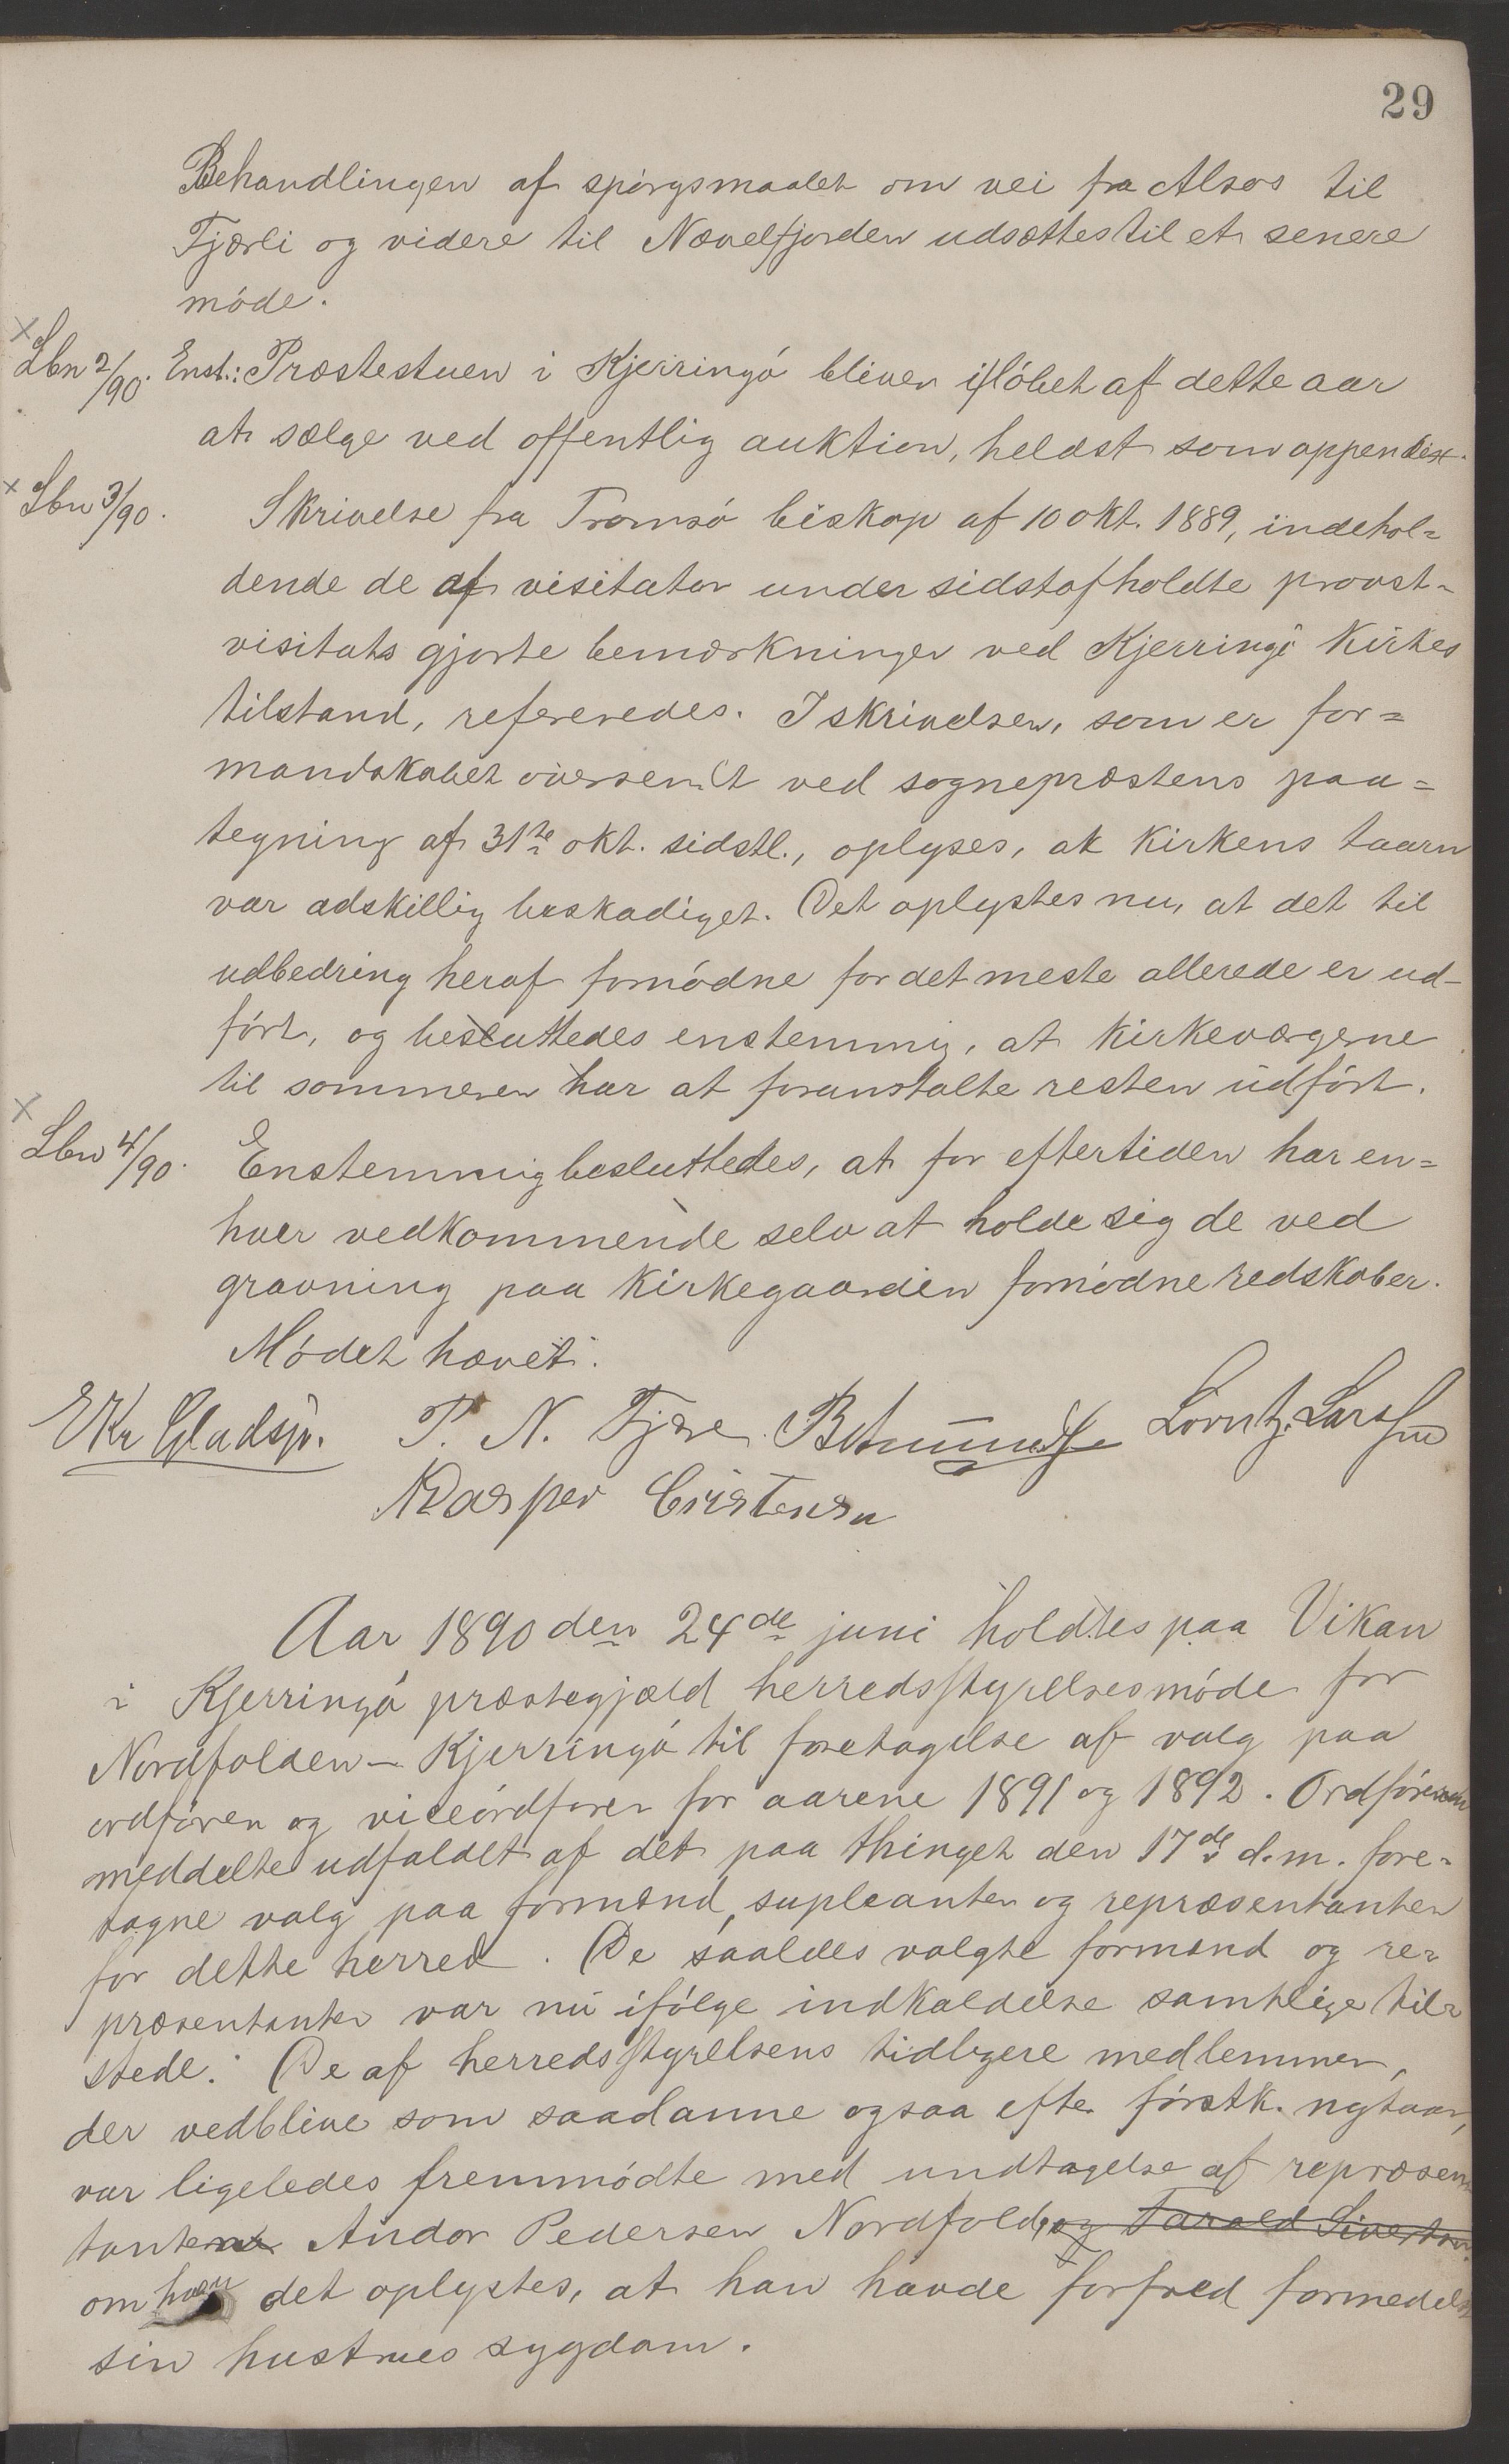 29
Behandlingen af spörgsmaalet om vei fra Alsos til
Tjærli og videre til Nævelfjorden udsættes til et senere
möde.
Lbn 2/90. Enst.: Præstestuen i Kjerringö bliver i löbet af dette aar
at sælge ved offentlig auktion, heldst som appendix.
Lbn 3/90. Skrivelse fra Tromsö biskop af 10 okt. 1889, indehol=
dende de af visitator under sidstafholdte provst-
visitats gjorte bemærkninger ved Kjerringö kirkes
tilstand, refereredes. I skrivelsen, som er for=
mandskabet oversendt ved sognepræstens paa=
tegning af 31te okt. sidstl., oplyses, at kirkens taarn
var adskillig beskadiget. Det oplystes nu, at det til
udbedring heraf fornödne for det meste allerede er ud-
fört, og besluttedes enstemmig, at kirkeværgerne
til sommeren har at foranstalte resten udfört.
Lbn 4/90. Enstemmig besluttedes, at for eftertiden har en=
hver vedkommende selv at holde sig de ved
gravning paa kirkegaarden fornödne redskaber.
Mödet hævet.
E Kr Gladsjö. P. N. Tjære Lorntz Larssen
Kasper Cristensn
Aar 1890 den 24de juni holdtes paa Vikan
i Kjerringö præstegjæld herredsstyrelsesmöde for
Nordfolden-Kjerringö til foretagelse af valg paa
ordförer og viceordförer for aarene 1891 og 1892. Ordföreren
meddelte udfaldet af det paa thinget den 17de d.m. fore-
tagne valg paa formænd, supleanter og repræsentanter
for dette herred. De saaldes valgte formænd og re-
præsentanter var nu ifölge indkaldelse samtlige til-
stede. De af herredsstyrelsens tidligere medlemmer,
der vedblive som saadanne ogsaa efter förstk. nytaar,
var ligeledes fremmödte med undtagelse af repræsen-
tanten Andor Pedersen Nordfold, og Tarald Sivertsen
om hvem det oplystes, at han havde forfald formedelst
sin hustrues sygdom.